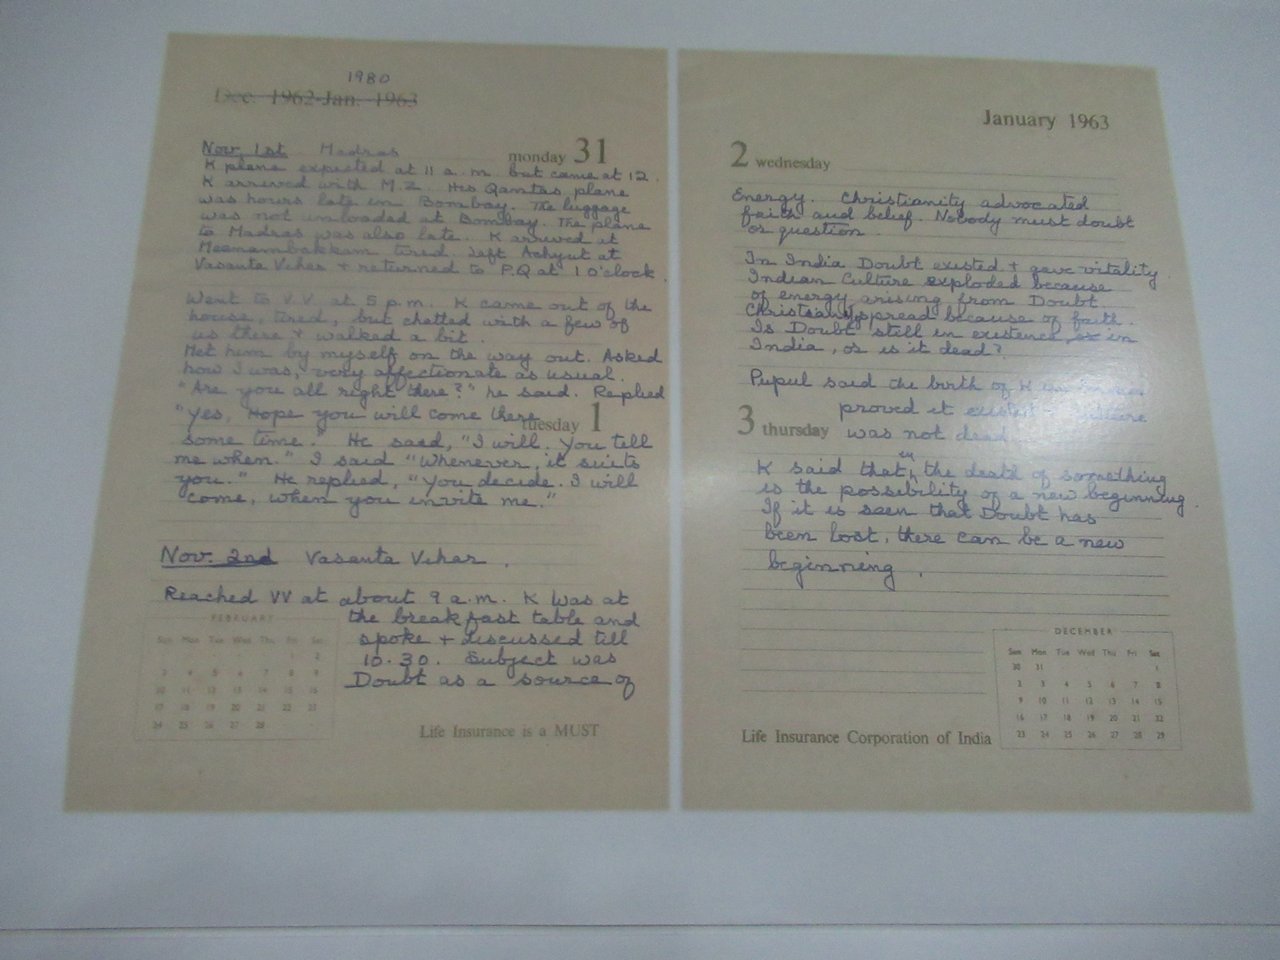 1980
Dec. 1962-Jan. 1963
Nov. 1st Madras
monday 31
K plane expected at 11 a.m. but came at 12.
K arrived with M.Z. His Qantas plane
was hours late in Bombay. The luggage
was not unloaded at Bombay. The plane
to Madras was also late. K arrived at
Meenambakkam tired. Left Achyut at
Vasanta Vihar + returned to P.Q at 1 o'clock.
Went to V.V. at 5 p.m. K came out of the
house, tired, but chatted with a few of
us there + walked a bit.
Met him by myself on the way out. Asked
how I was, very affectionate as usual.
"Are you all right there?" he said. Replied
"Yes, Hope you will come there
tuesday 1
some time." He said, "I will. You tell
me when." I said "Whenever it suits
you." He replied, "You decide. I will
come, when you invite me."
Nov. 2nd Vasanta Vihar.
Reached VV at about 9 a.m. K was at
the breakfast table and
spoke + discussed till
10.30. Subject was
Doubt as a source of
FEBRUARY
Sun Mon Tue Wed Thu Fri Sat
1 2
3 4 5 6 7 8 9
10 11 12 13 14 15 16
17 18 19 20 21 22 23
24 25 26 27 28
Life Insurance is a MUST
January 1963
2 wednesday
Energy. Christianity advocated
faith and belief. Nobody must doubt
or question.
In India Doubt existed + gave vitality.
Indian Culture exploded because
of energy arising from Doubt.
Christianity spread because of faith.
Is Doubt still in existence, or in
India, or is it dead?
Pupul said the birth of K in
proved it existed + culture
3 thursday
was not dead.
K said that in the death of something
is the possibility of a new beginning.
If it is seen that Doubt has
been lost, there can be a new
beginning.
DECEMBER
Sun Mon Tue Wed Thu Fri Sat
30 31 1
2 3 4 5 6 7 8
9 10 11 12 13 14 15
16 17 18 19 20 21 22
23 24 25 26 27 28 29
Life Insurance Corporation of India